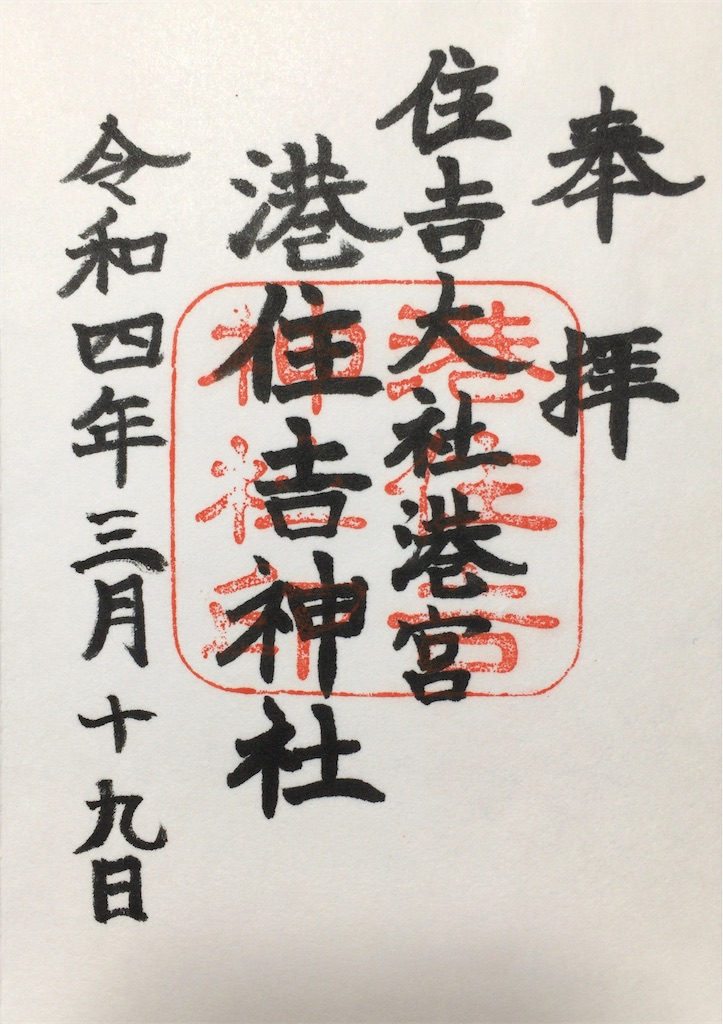 奉拝
住吉大社港宮
港住吉神社
令和四年三月十九日
港住吉
神社印